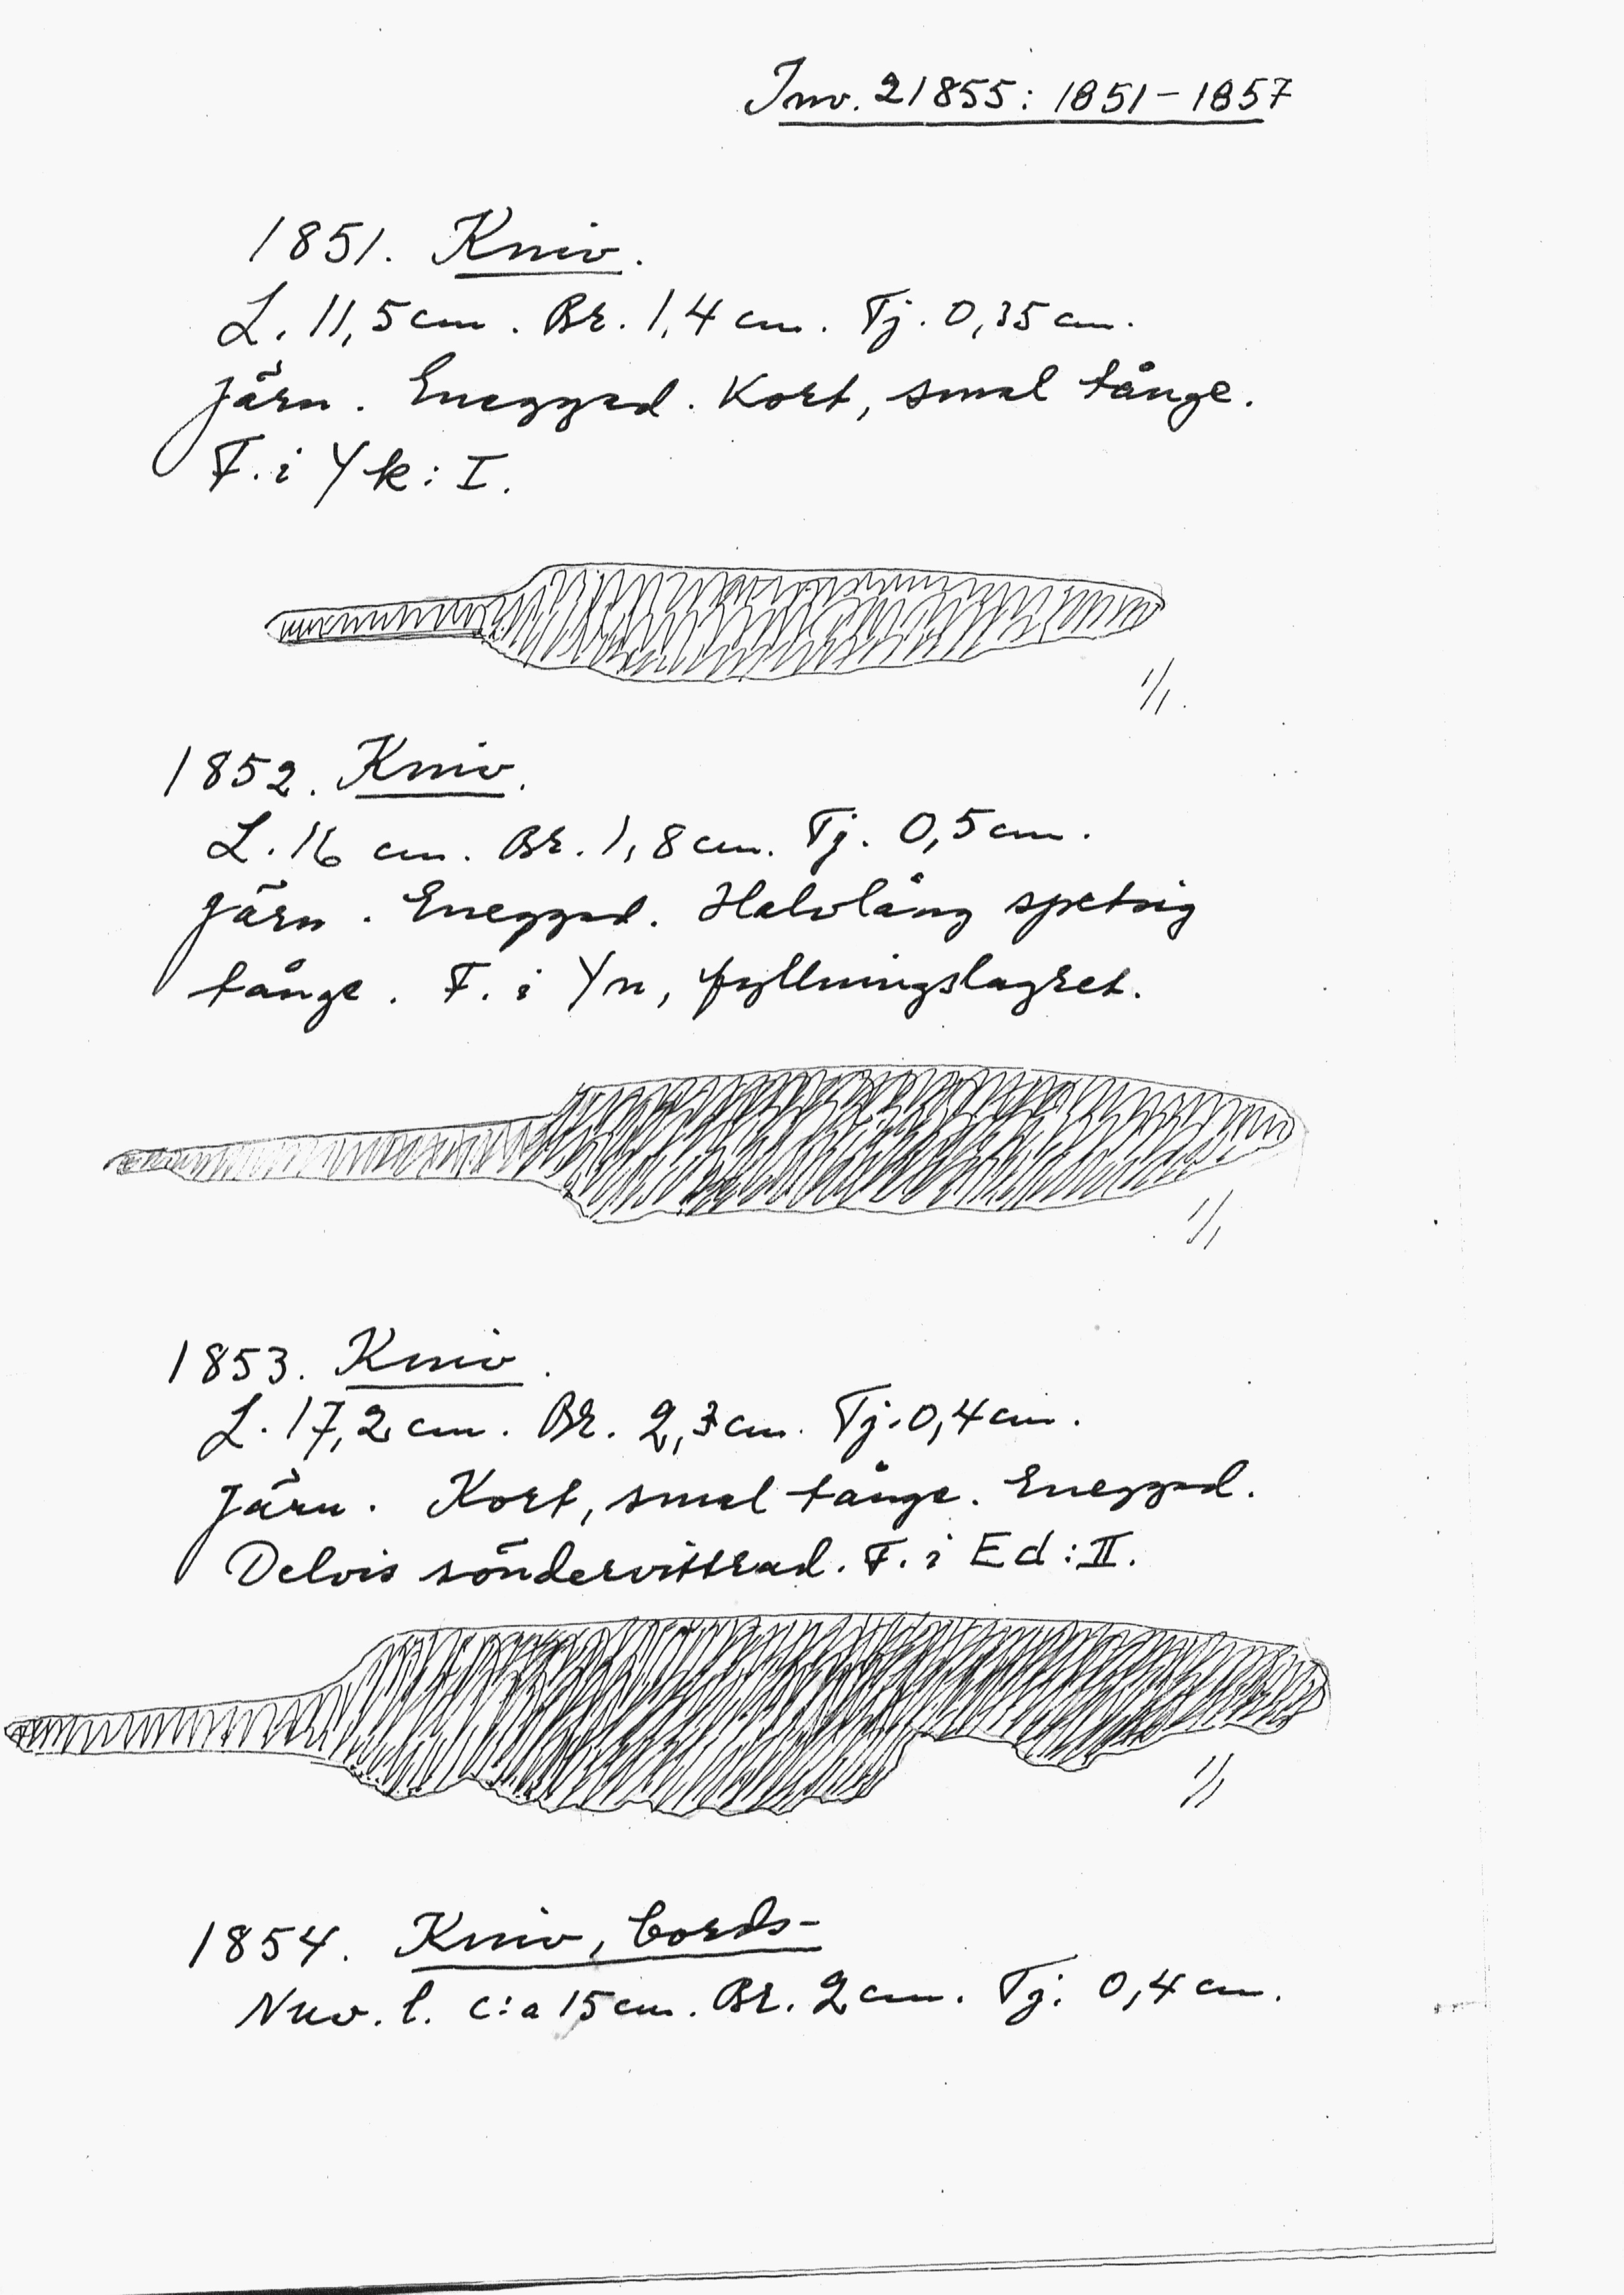 Inv. 21855: 1851-1857
1851. Kniv.
L. 11,5 cm. Br. 1,4 cm. Tj. 0,35 cm.
Järn. Eneggad. Kort, smal tånge.
F. i Yk: I.
1/1.
1852. Kniv.
L. 16 cm. Br. 1,8 cm. Tj. 0,5 cm.
Järn. Eneggad. Halvlång spetsig
tånge. F. i Yn, fyllningslagret.
1/1
1853. Kniv.
L. 17,2 cm. Br. 2,3 cm. Tj. 0,4 cm.
Järn. Kort, smal tånge. Eneggad.
Delvis söndervittrad. F. i Ed: II.
1/1
1854. Kniv, bords-
Nuv. l. c:a 15 cm. Br. 2 cm. Tj. 0,4 cm.